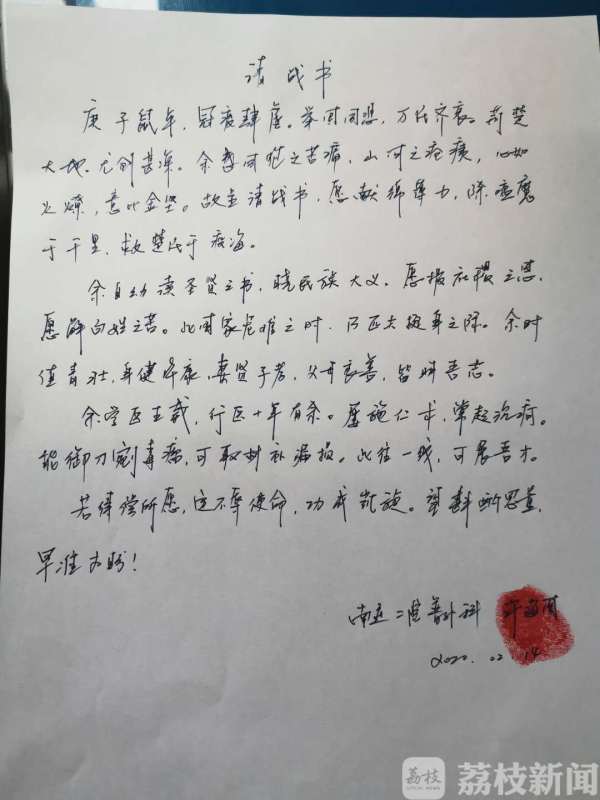 请战书
庚子鼠年，冠疫肆虐。举国同悲，万民齐哀。荆楚
大地，尤创甚深。余感同胞之苦痛，山河之疮痍，心如
火燎，意比金坚。故呈请战书，愿献绵薄力，除瘟魔
于千里，救楚氏于疫海。
余自幼读圣贤之书，晓民族大义。愿报社稷之恩，
愿解百姓之苦。此国家危难之时，乃匹夫报身之际。余时
值青壮，身健体康，妻贤子孝，父母良善，皆明吾志。
余学医五载，行医十年有余。屡施仁术，常起沉疴。
能御刀割毒瘤，可取材补漏损。此往一线，可展吾才。
若得偿所愿，定不辱使命，功成凯旋。望斟酌思量，
早准为盼！
南医二院普外科
2020.02.14
荔枝
LITCHI NEWS
荔枝新闻